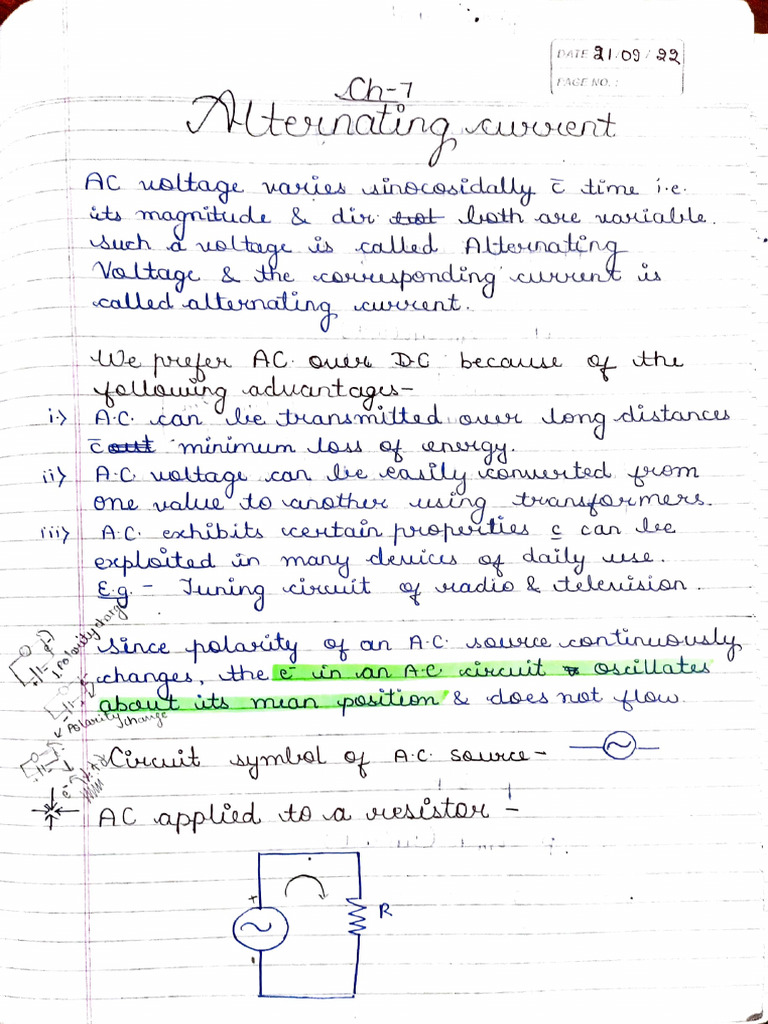 DATE 21/09/22
PAGE NO.:
Ch-7
Alternating current
AC voltage varies sinocosidally c̄ time i.e.
its magnitude & dir both are variable.
such a voltage is called Alternating
Voltage & the corresponding current is
called alternating current.
We prefer AC over DC because of the
following advantages-
i.> A.C. can be transmitted over long distances
c̄ minimum loss of energy.
ii> A.C. voltage can be easily converted from
one value to another using transformers.
iii> A.C. exhibits certain properties c̲ can be
exploited in many devices of daily use.
E.g. - Tuning circuit of radio & television.
Since polarity of an A.C. source continuously
changes, the e⁻ in an A.C. circuit oscillates
about its mean position & does not flow.
Polarity change
Polarity change
e⁻
Circuit symbol of A.C. source- ~
AC applied to a resistor -
+
~
R
-